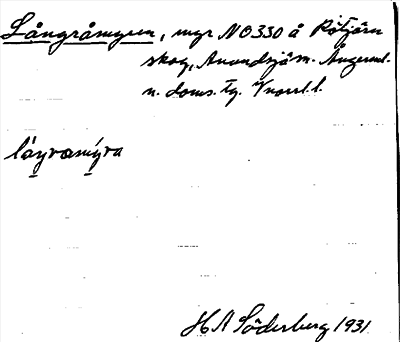 Långråmyren, myr NO330 å Rötjärn
skog, Anundsjö sn. Ångerml.
n. doms. Tg. Vnorrl. l.
låŋråmýra
H A Söderberg 1931